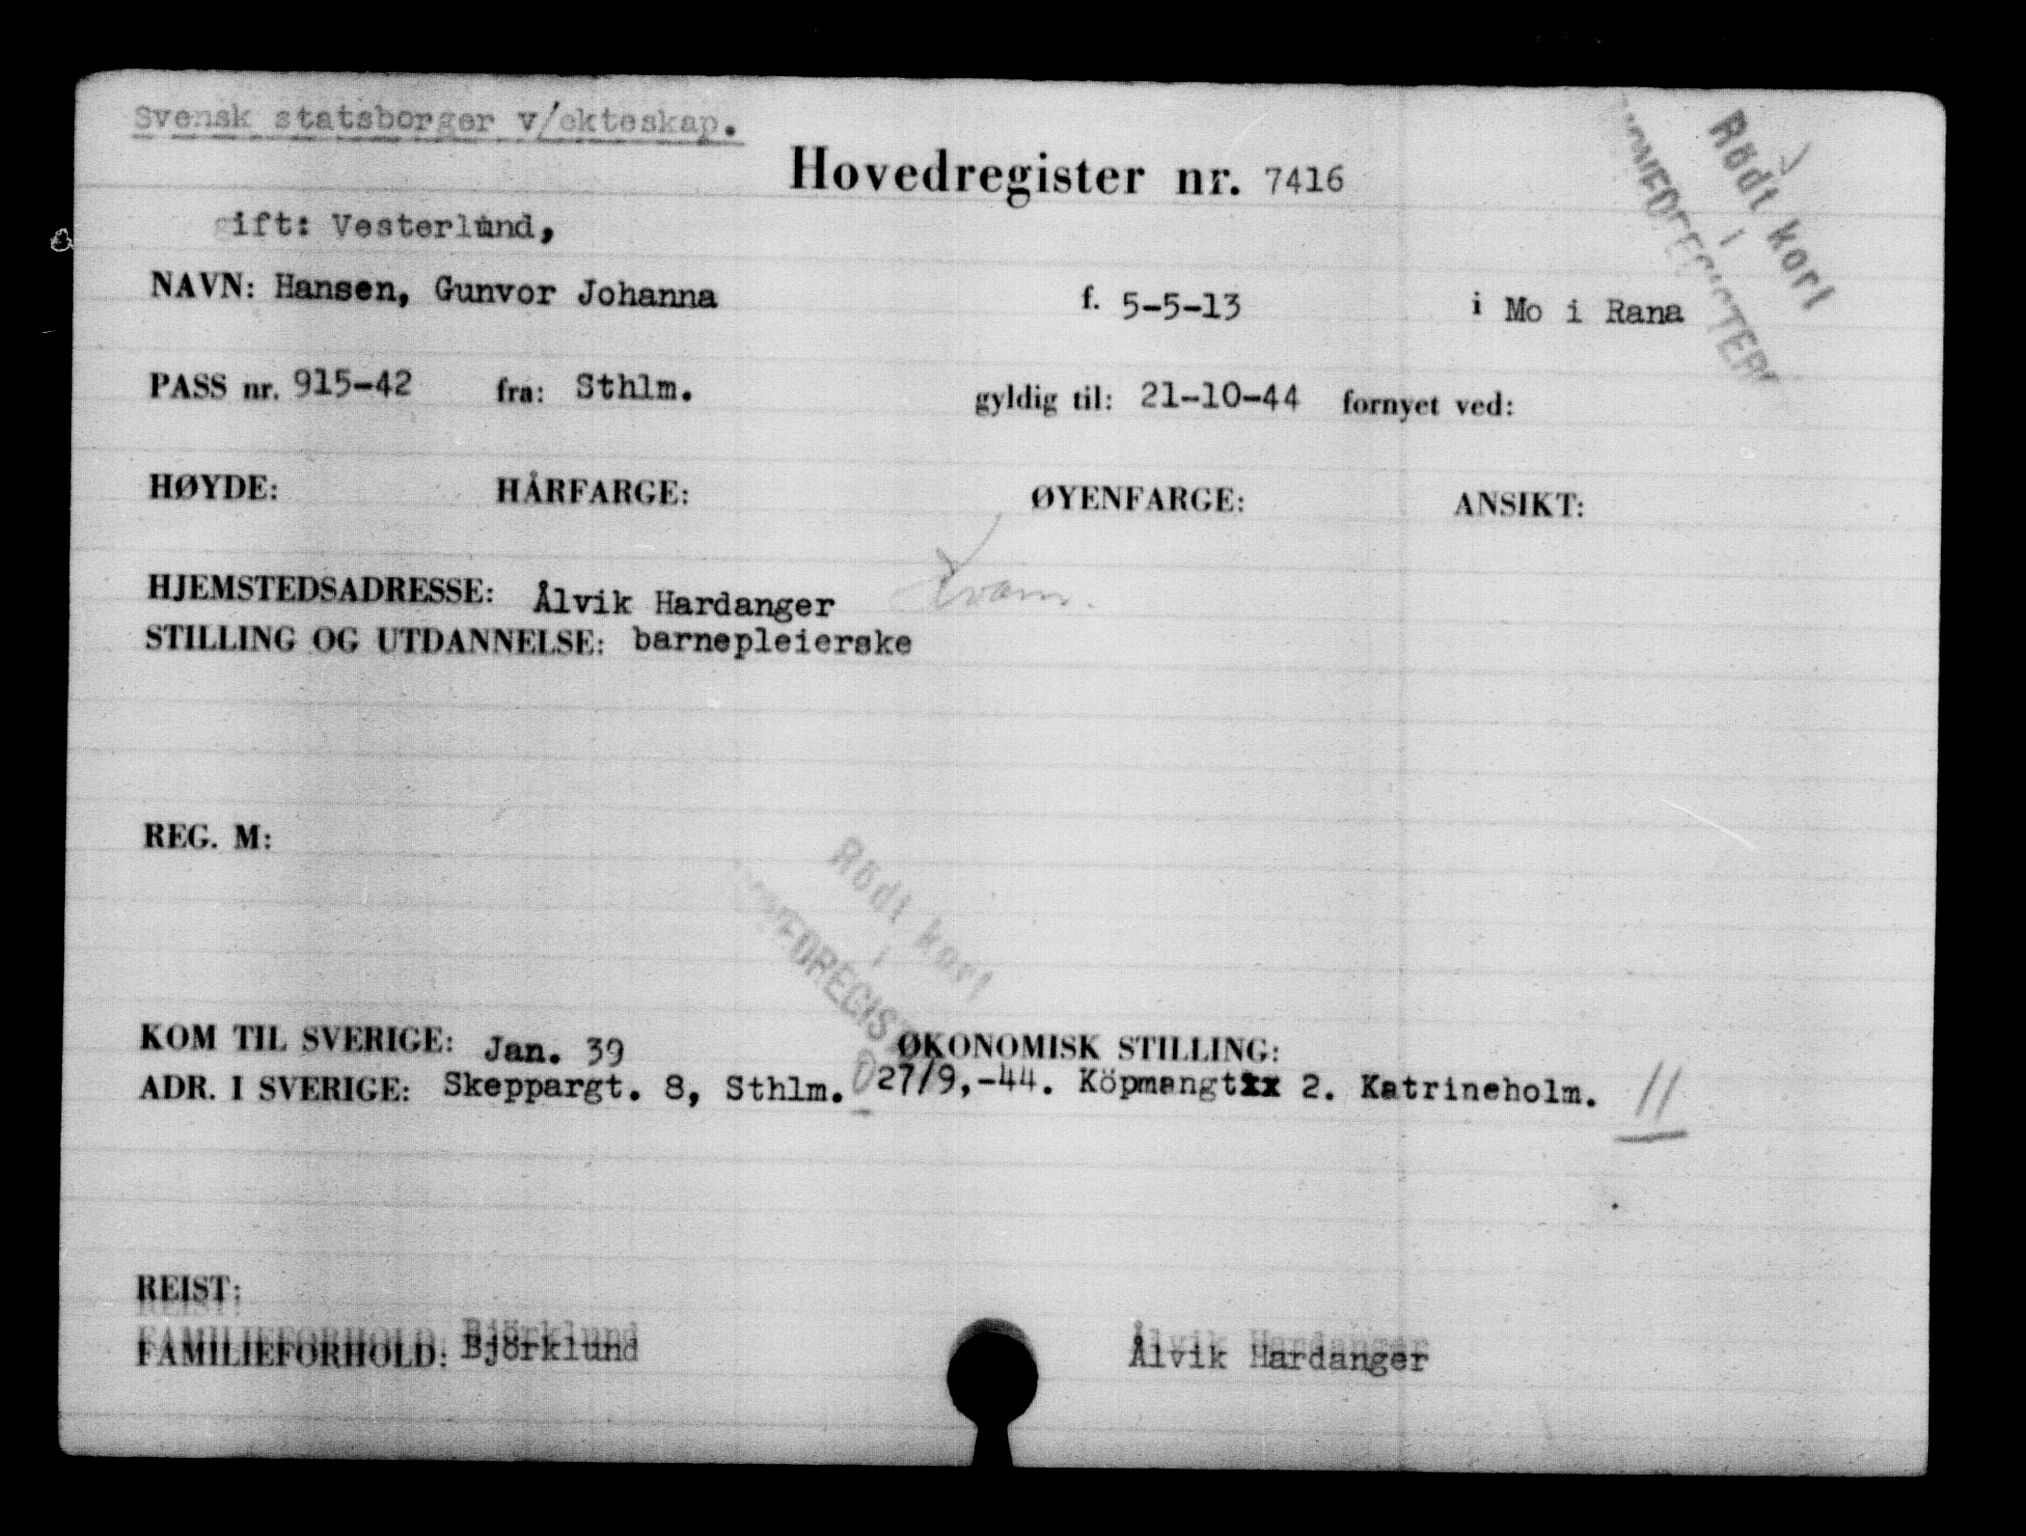 Svensk statsborger v/ekteskap.
Hovedregister nr. 7416
Rödt kort
i
gift: Vesterlund,
NAVN: Hansen, Gunvor Johanna f. 5-5-13 i Mo i Rana
PASS nr. 915-42 fra: Sthlm. gyldig til: 21-10-44 fornyet ved:
HØYDE: HÅRFARGE: ØYENFARGE: ANSIKT:
HJEMSTEDSADRESSE: Ålvik Hardanger Kvam.
STILLING OG UTDANNELSE: barnepleierske
REG. M:
Rödt kort
i
KOM TIL SVERIGE: Jan. 39 ØKONOMISK STILLING:
ADR. I SVERIGE: Skeppargt. 8, Sthlm. 27/9,-44. Köpmangtxx 2. Katrineholm. 11
REIST:
FAMILIEFORHOLD: Björklund Ålvik Hardanger